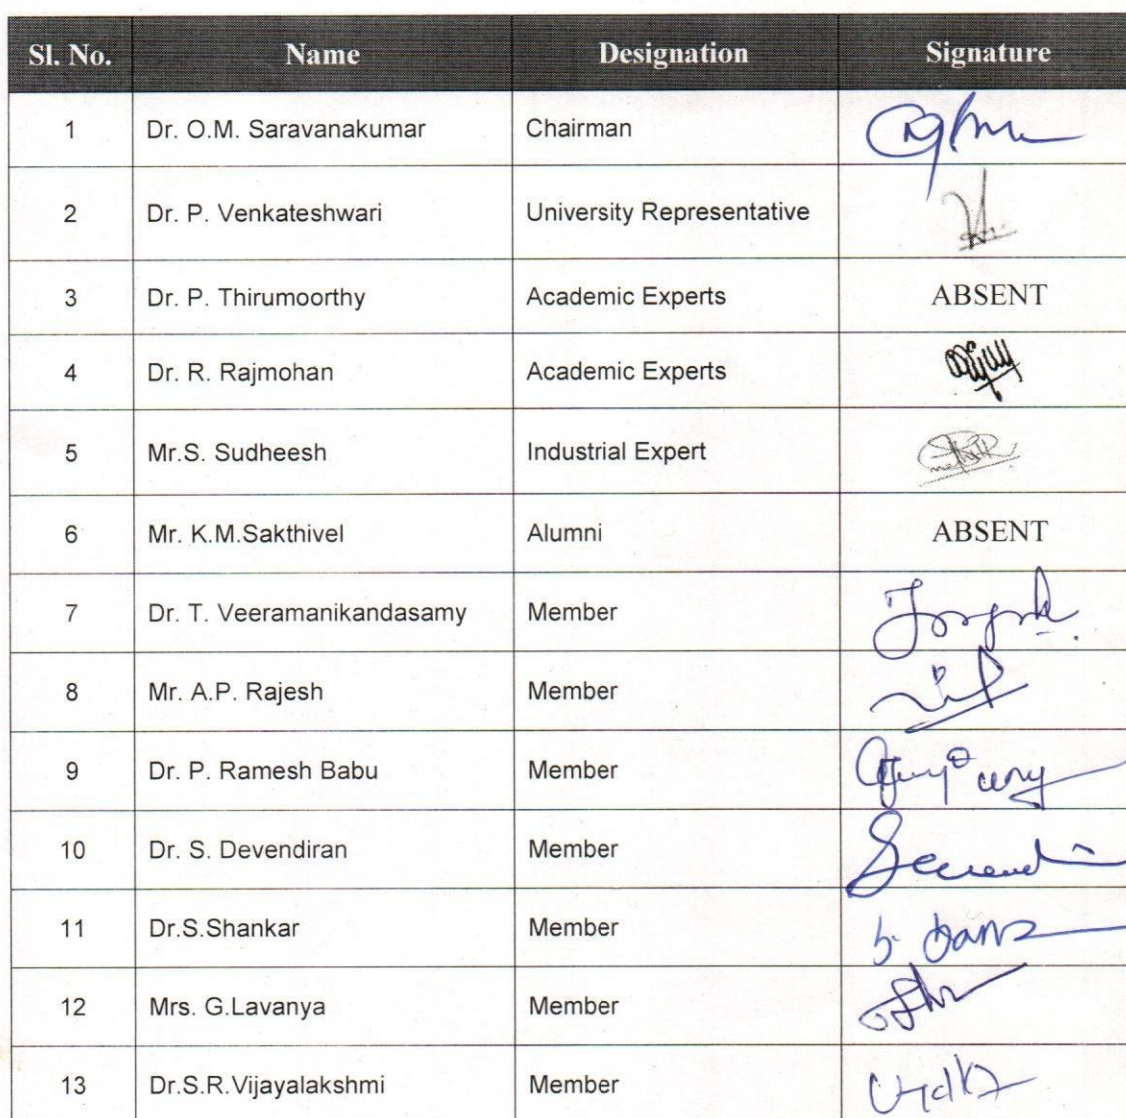 Sl. No. Name Designation Signature
1 Dr. O.M. Saravanakumar Chairman
2 Dr. P. Venkateshwari University Representative
3 Dr. P. Thirumoorthy Academic Experts ABSENT
4 Dr. R. Rajmohan Academic Experts
5 Mr.S. Sudheesh Industrial Expert
6 Mr. K.M.Sakthivel Alumni ABSENT
7 Dr. T. Veeramanikandasamy Member
8 Mr. A.P. Rajesh Member
9 Dr. P. Ramesh Babu Member
10 Dr. S. Devendiran Member
11 Dr.S.Shankar Member
12 Mrs. G.Lavanya Member
13 Dr.S.R.Vijayalakshmi Member